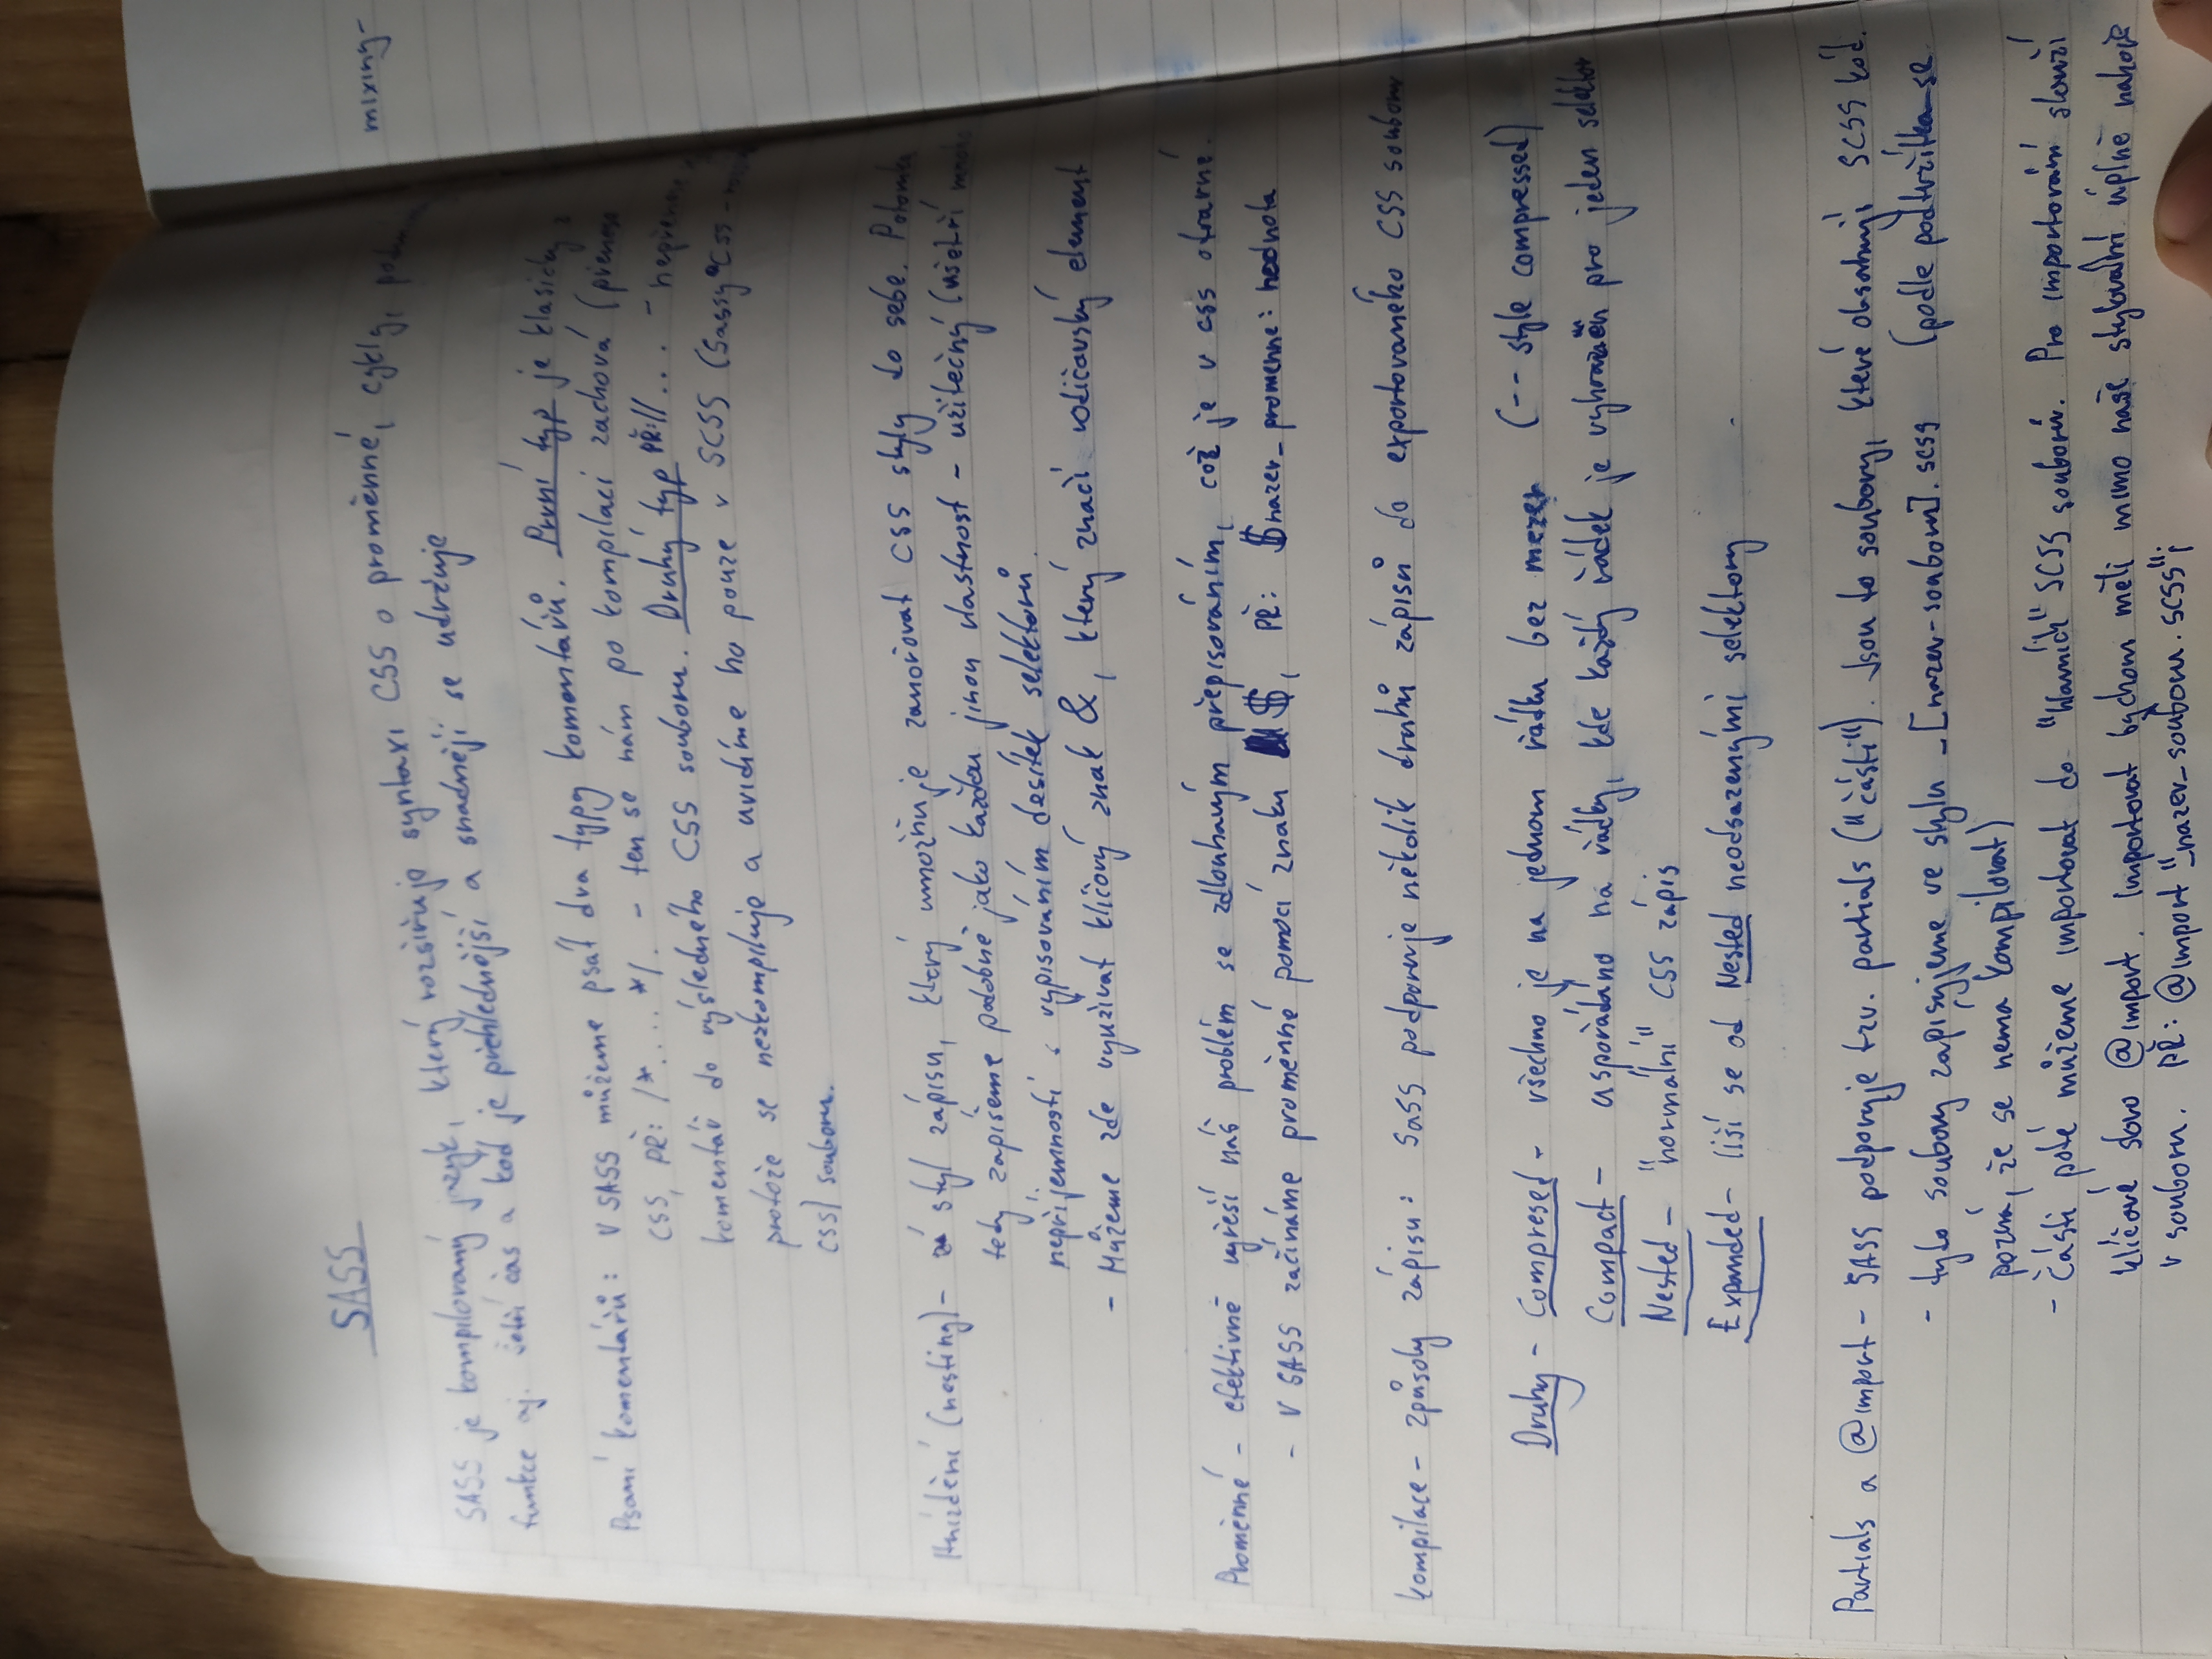 SASS
mixing-
SASS je kompilovaný jazyk, který rozšiřuje syntaxi CSS o proměnné, cykly,
funkce aj. šetří čas a kód je přehlednější a snadněji se udržuje
Psaní komentářů: V SASS můžeme psát dva typy komentářů. První typ je klasický z
CSS, PŘ: /*.... */. - ten se nám po kompilaci zachová (přenese
komentář do výsledného CSS souboru. Druhý typ PŘ://... -
protože se nezkompiluje a uvidíme ho pouze v SCSS (Sassy CSS -
CSS) souboru.
Hnízdění (nesting) - styl zápisu, který umožňuje zanořovat CSS styly do sebe. Potomka
tedy zapíšeme podobně jako každou jinou vlastnost - užitečný (ušetří mnoho
nepříjemností s vypisováním desítek selektorů.
- Můžeme zde využívat klíčový znak &, který značí rodičovský element
Proměnné - efektivně vyřeší náš problém se zdlouhavým přepisováním, což je v css otravné.
- V SASS začínáme proměnné pomocí znaku $, PŘ: $nazev_promenne: hodnota
Kompilace - způsoby zápisu: SaSS podporuje několik druhů zápisů do exportovaného CSS souboru
Druhy - Compresed - všechno je na jednom řádku bez mezer (-- style compressed)
Compact - uspořádáno na řádky, kde každý řádek je vyhrazen pro jeden selektor
Nested - "normální" CSS zápis
Expanded - liší se od Nested neodsazenými selektory
Partials a @import - SASS podporuje tzv. partials ("části"). Jsou to soubory, které obsahují SCSS kód.
- tyto soubory zapisujeme ve stylu _[nazev-souboru].scss (podle podtržítka se
pozná, že se nemá kompilovat)
- Části poté můžeme importovat do "hlavních" SCSS souborů. Pro importování slouží
klíčové slovo @import. Importovat bychom měli mimo naše stylování úplně nahoře
v souboru. PŘ: @import "_nazev_souboru.scss";